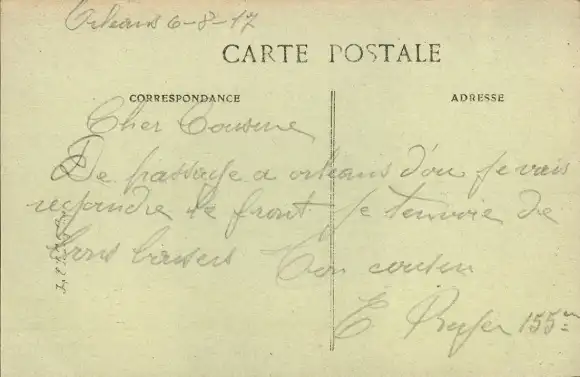 Orleans 6-8-17
CARTE POSTALE
CORRESPONDANCE
ADRESSE
Cher Cousine
De passage a orleans d'ou je vais
rejoindre le front je t'envoie de
bons baisers Ton cousin
E 155